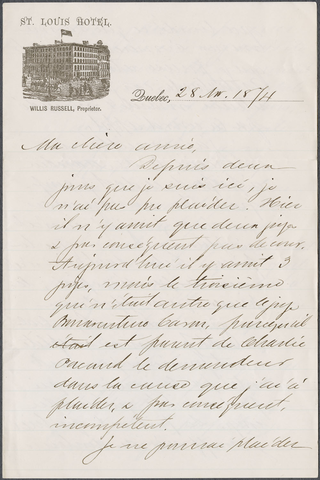 ST. LOUIS HOTEL.
WILLIS RUSSELL, Proprietor.
Quebec, 28 1874
Ma chère amie,
Depuis deux
jours que je suis ici, je
n'ai pas pu plaider. Hier
il n'y avait que deux juges
& par conséquent pas de cour.
Aujourd'hui il y avait 3
juges, mais le troisième
qui n'était autre que le juge
parcequ'il
était est parent de Charlie
le demandeur
dans la cause que j'ai à
plaider, & par conséquent,
incompétent.
Je ne pourrai plaider